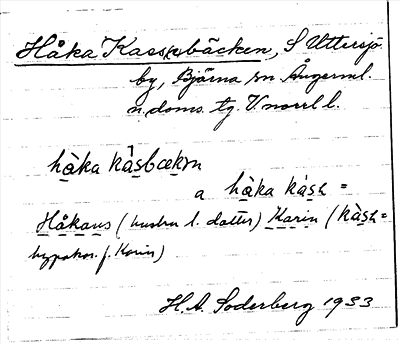 Håka Kass(e)bäcken, S Uttersjö
by, Björna sn Ångerml.
n. doms. tg. V.norrl l.
hàka kàsbækm
a hàka kàsh =
Håkans (hustru l. dotter) Karin (kàsh =
hypokor. f. Karin)
H.A. Soderberg 1933